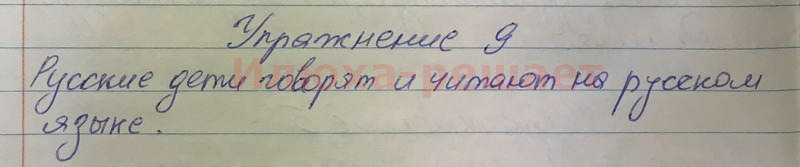 Упражнение 9
Русские дети говорят и читают на русском
языке.
Илюха-решает